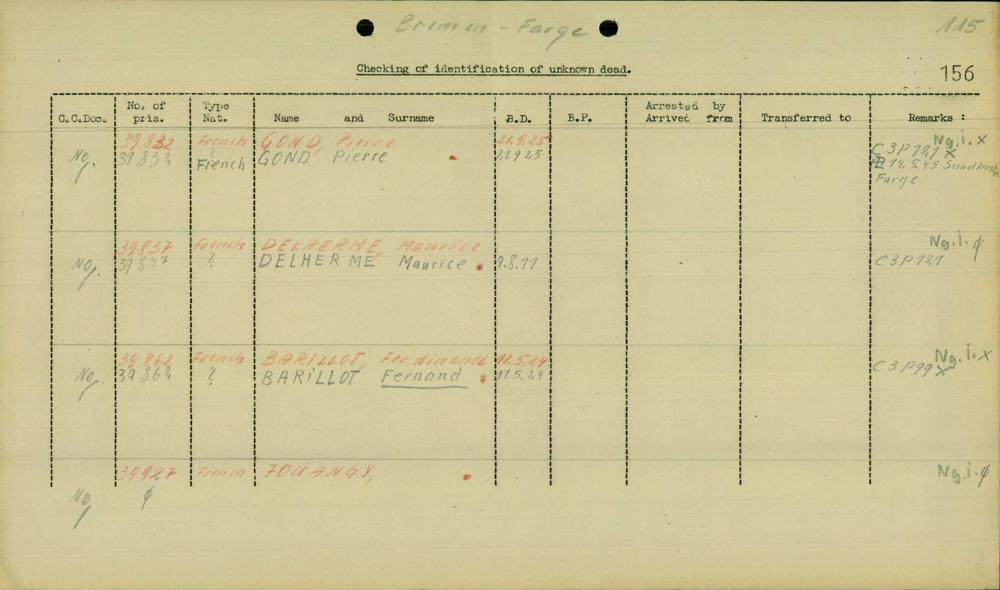 Bremen - Farge
115
Checking of identification of unknown dead.
156
C.C.Doc. No. of pris. Type Nat. Name and Surname B.D. B.P. Arrested by Arrived from Transferred to Remarks :
39832 French GOND, Pierre 21.9.25 Ng.i.x
Ng. 39832 ? French GOND Pierre 21.9.25 C3P121 x
14.5.45 Sandbostel
Farge
39837 French DELHERME, Maurice Ng.i.ø
Ng. 39837 ? DELHERME Maurice 9.8.11 C3P121
39862 French BARILLOT, Ferdinand 11.5.24 Ng.i.x
Ng. 39862 ? BARILLOT Fernand 11.5.24 C3P99 x
39927 French JOUANGY, Ng.i.ø
Ng. ø